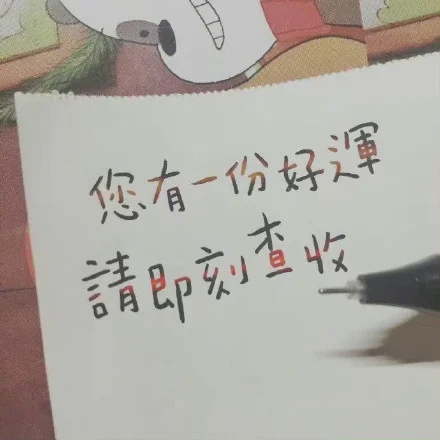 您有一份好運
請即刻查收